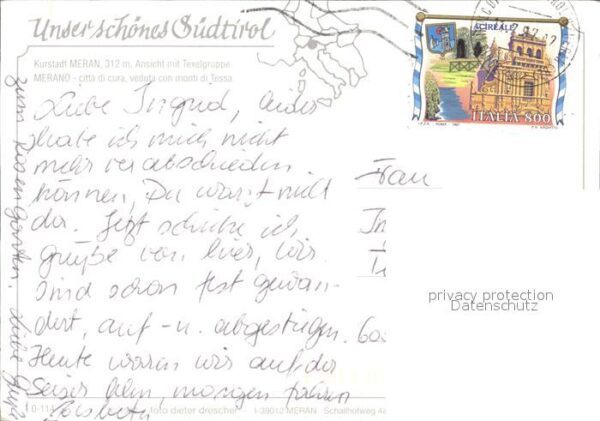 Unser schönes Südtirol
Kurstadt MERAN, 312 m, Ansicht mit Texelgruppe
MERANO - città di cura, veduta con monti di Tessa
ACIREALE
ITALIA 800
Liebe Ingrid, leider
habe ich mich nicht
mehr verabschieden
können, Du warst nicht
da. Jetzt schicke ich
Grüße von hier, wir
sind schon fest gewan-
dert, auf - u. abgestiegen.
Heute waren wir auf der
Seiser Alm, morgen fahren
zum Rosengarten. Liebe
Frau
In
60
privacy protection
Datenschutz
foto dieter drescher I-39012 MERAN Schallhofweg